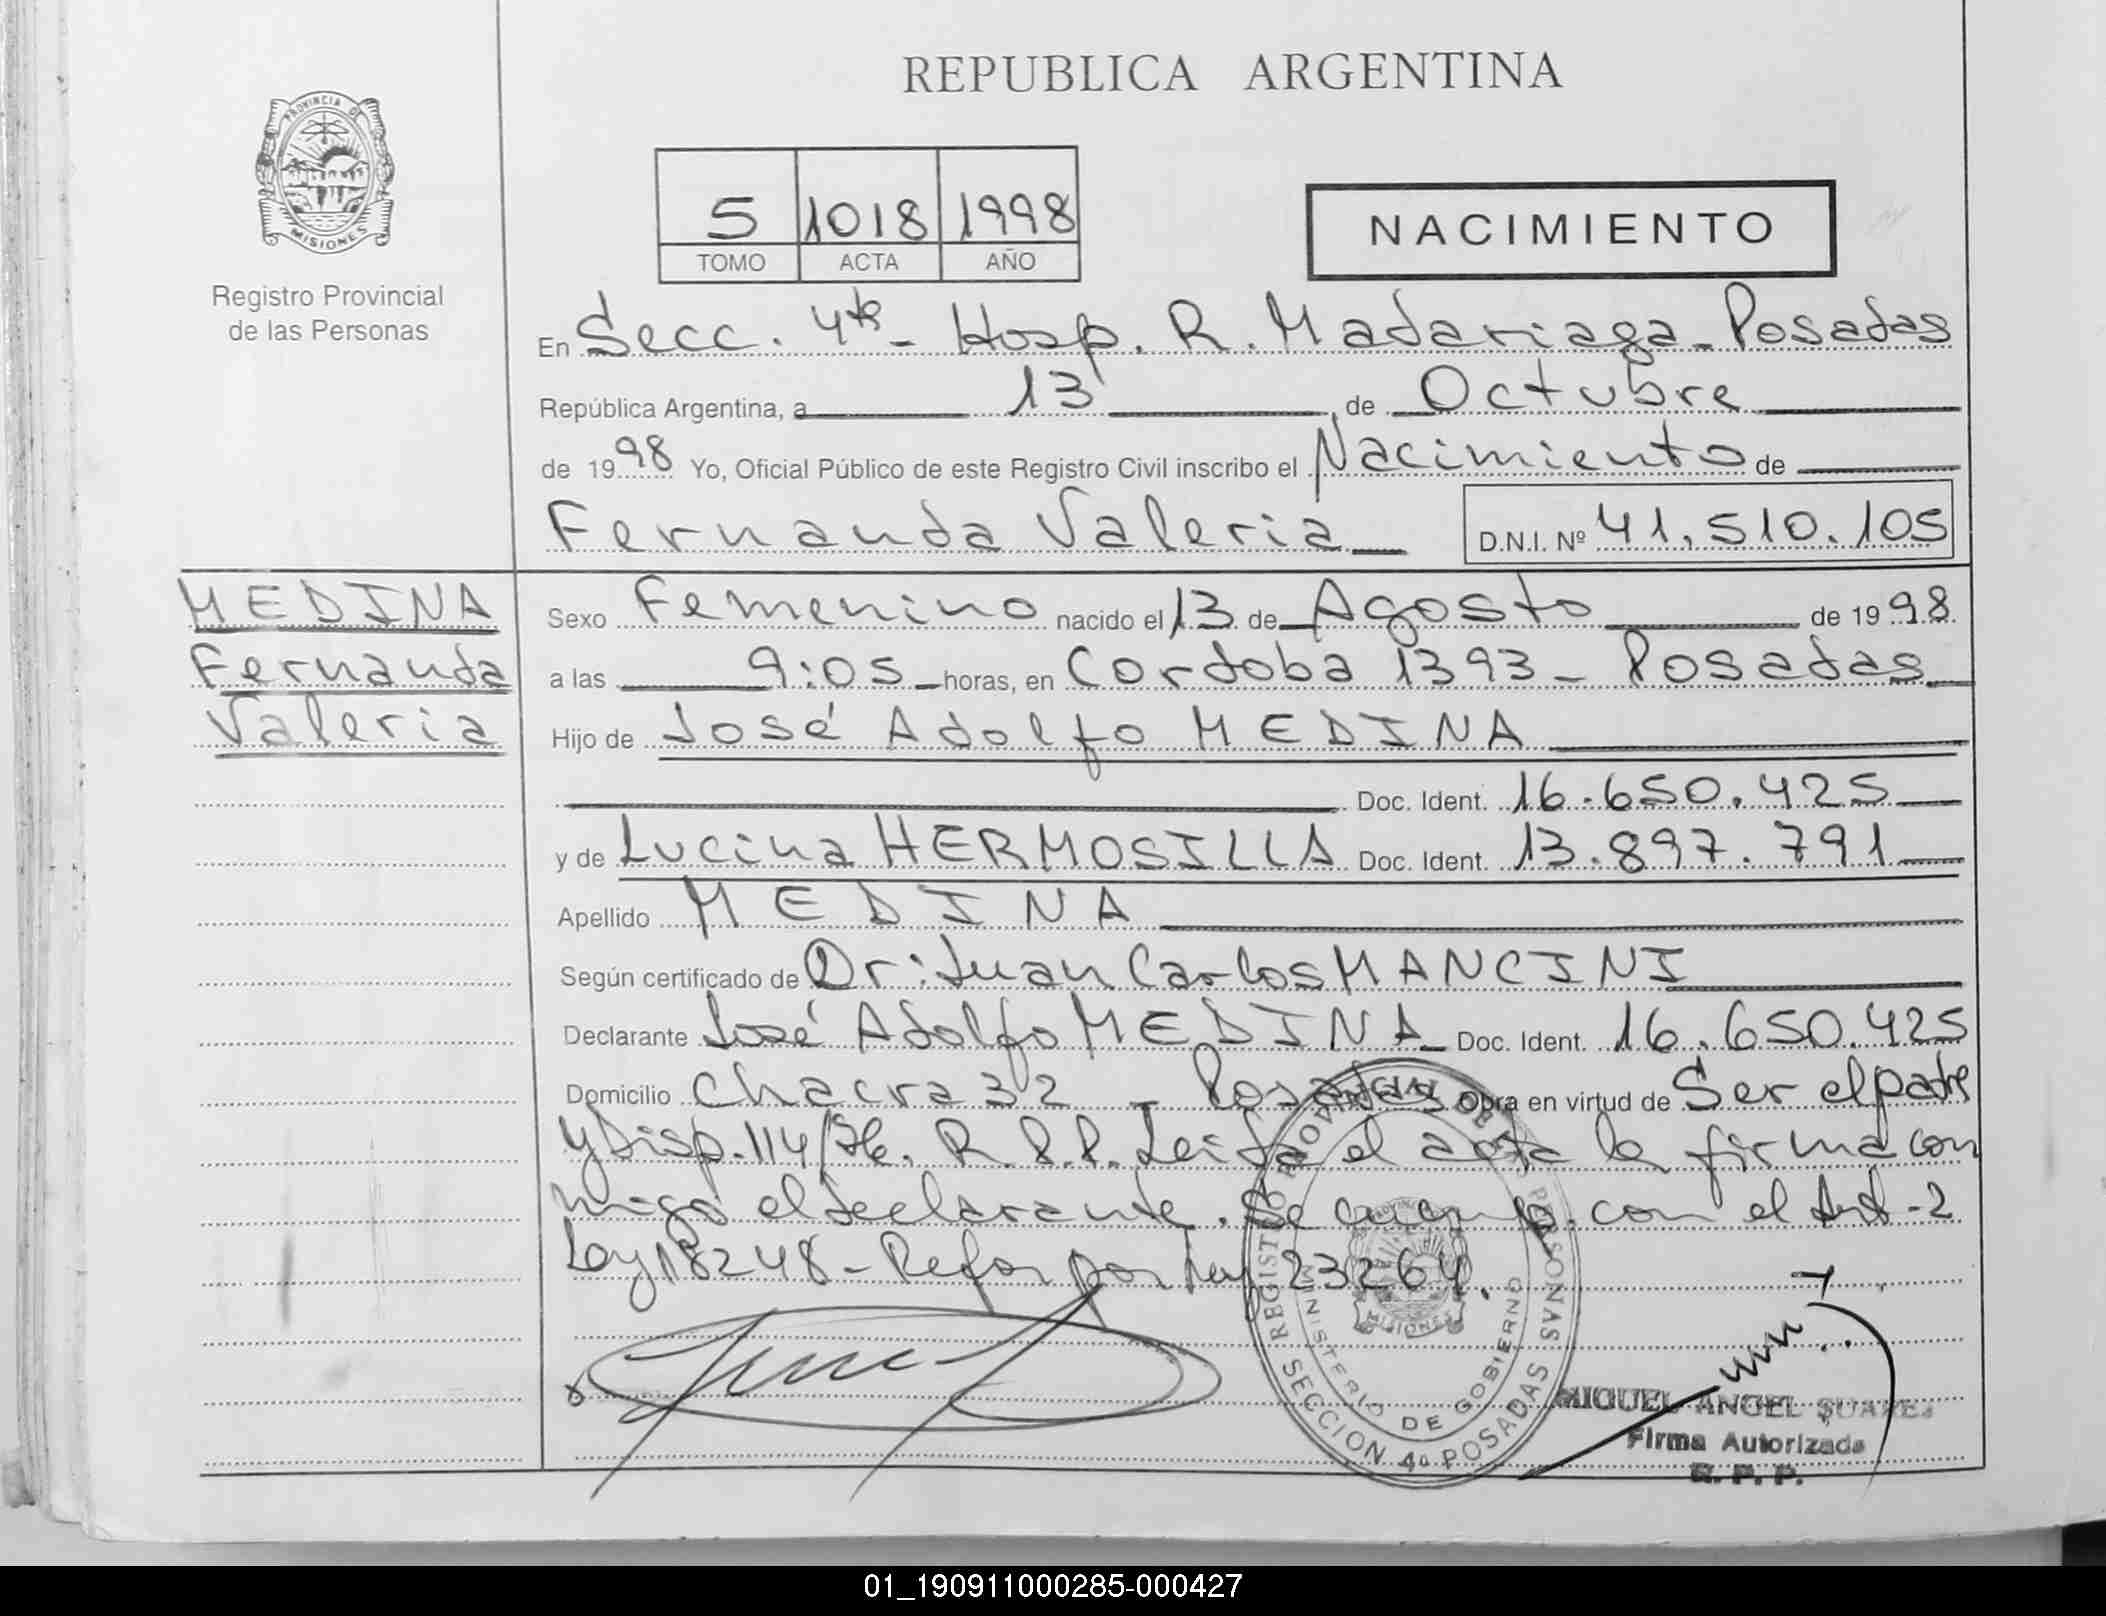 REPUBLICA ARGENTINA
PROVINCIA DE
MISIONES
Registro Provincial
de las Personas
5 1018 1998
TOMO ACTA AÑO
NACIMIENTO
En Secc. 4ta - Hosp. R. Madariaga - Posadas
República Argentina, a 13 de Octubre
de 1998 Yo, Oficial Público de este Registro Civil inscribo el Nacimiento de
Fernanda Valeria D.N.I. Nº 41.510.105
MEDINA
Fernanda
Valeria
Sexo Femenino nacido el 13 de Agosto de 1998
a las 9:05 horas, en Cordoba 1393 - Posadas
Hijo de José Adolfo MEDINA
Doc. Ident. 16.650.425
y de Lucina HERMOSILLA Doc. Ident. 13.897.791
Apellido MEDINA
Según certificado de Dr: Juan Carlos MANCINI
Declarante José Adolfo MEDINA Doc. Ident. 16.650.425
Domicilio Chacra 32 - Posadas Obra en virtud de Ser el padre
y Disp. 114/ R.P.P. Leida el acta la firma con
migo el declarante. Se con el Art-2
Ley 18248 - Refor por Ley 23264.
REGISTRO PROVINCIAL DE LAS PERSONAS
MINISTERIO DE GOBIERNO
SECCION 4a POSADAS
MISIONES
MIGUEL ANGEL SUAREZ
Firma Autorizada
R. P. P.
01_190911000285-000427